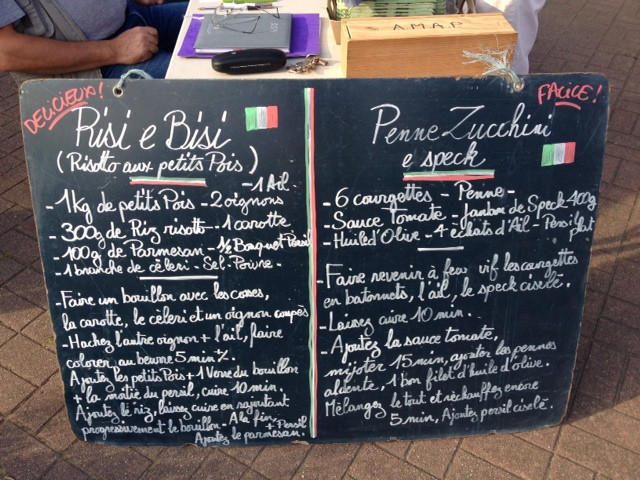 A.M.A.P
DELICIEUX!
Risi e Bisi
(Risotto aux petits Pois)
- 1 Ail
- 1Kg de petits Pois - 2 oignons
- 300g de Riz risotto - 1 carotte
- 100g de Parmesan - 1/2 Bouquet Persil
- 1 branche de cèleri - Sel - Poivre.
- Faire un bouillon avec les cosses,
la carotte, le cèleri et un oignon coupès
- Hachez l'autre oignon + l'ail, faire
colorer au beurre 5 min
Ajoutez les petits Pois + 1 Verre du bouillon
+ la moitié du persil, cuire 10 min.
Ajoutez le riz, laissez cuire en rajoutant
progressivement le bouillon - A la fin,
+ Persil
Ajoutez le parmesan.
FACILE!
Penne Zucchini
e speck
- 6 courgettes - Penne -
- Sauce Tomate - Jambon de Speck 400g
- Huile d'Olive - 4 éclats d'Ail - Persil
plat
- Faire revenir à feu vif les courgettes
en batonnets, l'ail, le speck ciselé.
- Laissez cuire 10 min.
- Ajoutez la sauce tomate,
mijoter 15 min, ajouter les pennes
aldente, 1 bon filet d'huile d'olive.
Mélangez le tout et réchauffez encore
5 min, Ajoutez persil ciselé.